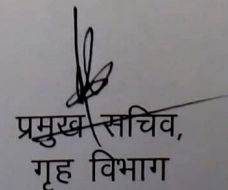 प्रमुख सचिव,
गृह विभाग